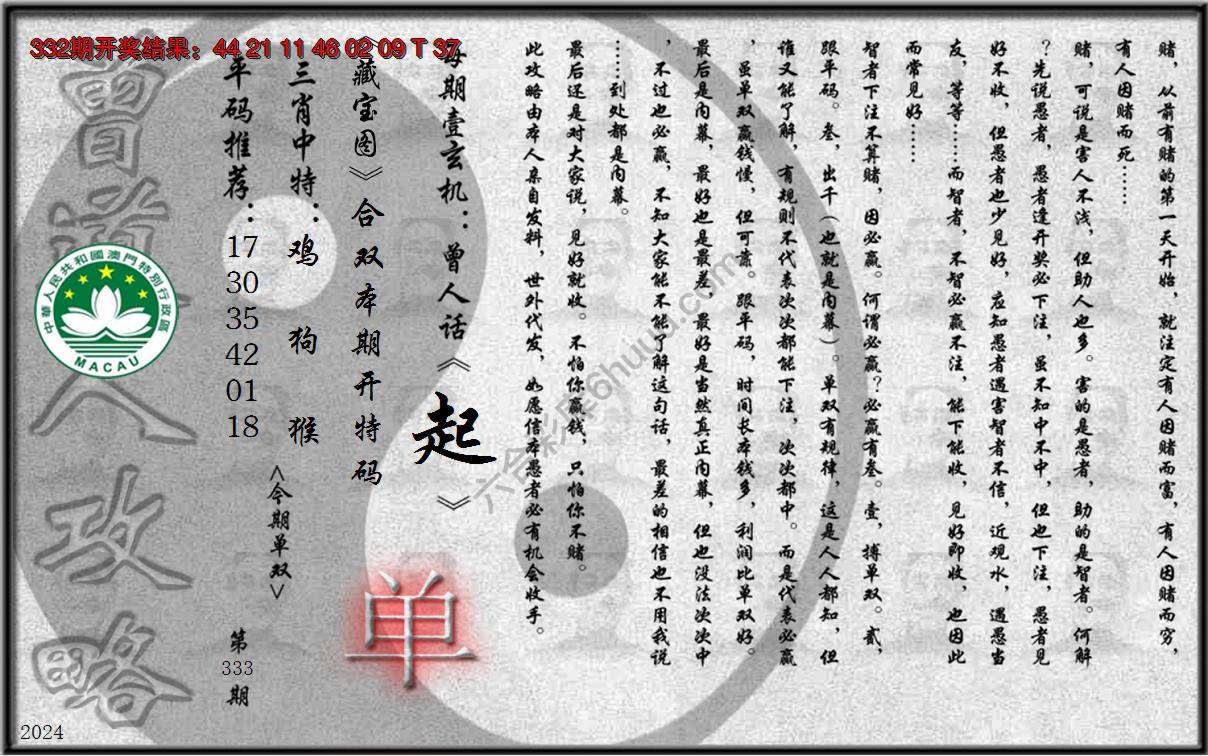 332期开奖结果：44 21 11 46 02 09 T 37
赌，从前有赌的第一天开始，就注定有人因赌而富，有人因赌而穷，
有人因赌而死……
赌，可说是害人不浅，但助人也多。害的是愚者，助的是智者。何解
？先说愚者，愚者逢开奖必下注，虽不知中不中，但也下注，愚者见
好不收，但愚者也少见好，应知愚者遇害智者不信，近观水，遇愚当
友，等等……而智者，不智必赢不注，能下能收，见好即收，也因此
而常见好……
智者下注不算赌，因必赢。何谓必赢？必赢有叁。壹，搏单双。贰，
跟平码。叁，出千（也就是内幕）。单双有规律，这是人人都知，但
谁又能了解，有规则不代表次次都能下注，次次都中。而是代表必赢
，虽单双赢钱慢，但可靠。跟平码，时间长本钱多，利润比单双好。
最后是内幕，最好也是最差，最好是当然真正内幕，但也没法次次中
，不过也必赢，不知大家能不能了解这句话，最差的相信也不用我说
……到处都是内幕。
最后还是对大家说，见好就收。不怕你赢钱，只怕你不赌。
此攻略由本人亲自发料，世外代发，如愿信本愚者必有机会收手。
每期壹玄机：曾人话《起》
《藏宝图》合双本期开特码
三肖中特：鸡 狗 猴
平码推荐：17 30 35 42 01 18
<今期单双>
单
第333期
曾道人攻略
中華人民共和國澳門特別行政區
MACAU
六合彩库6huuu.com
2024